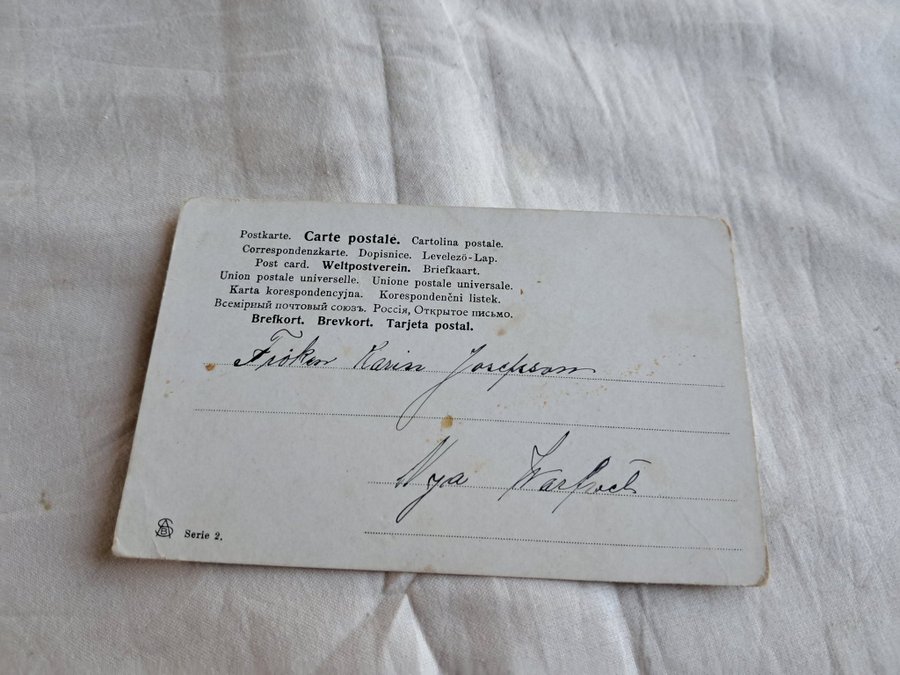 Postkarte. Carte postale. Cartolina postale.
Correspondenzkarte. Dopisnice. Levelező-Lap.
Post card. Weltpostverein. Briefkaart.
Union postale universelle. Unione postale universale.
Karta korespondencyjna. Korespondenční listek.
Всемірный почтовый союзъ. Россія, Открытое письмо.
Brefkort. Brevkort. Tarjeta postal.
Fröken Karin Josefsson
Nya
Serie 2.